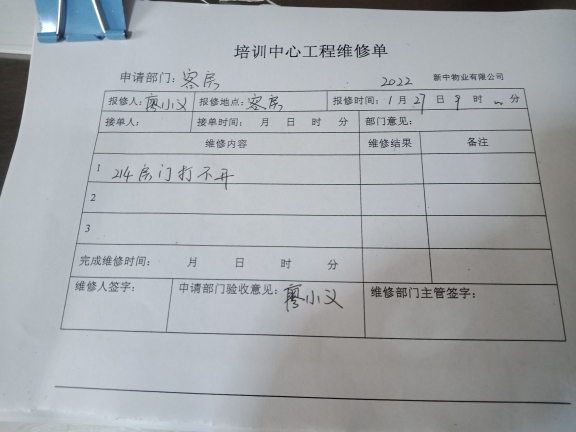 培训中心工程维修单
申请部门：客房 2022 新中物业有限公司
报修人：廖小义 报修地点：客房 报修时间：1月27日9时 分
接单人： 接单时间： 月 日 时 分 部门意见：
维修内容 维修结果 备注
1 214房门打不开
2
3
完成维修时间： 月 日 时 分
维修人签字： 申请部门验收意见：廖小义 维修部门主管签字：